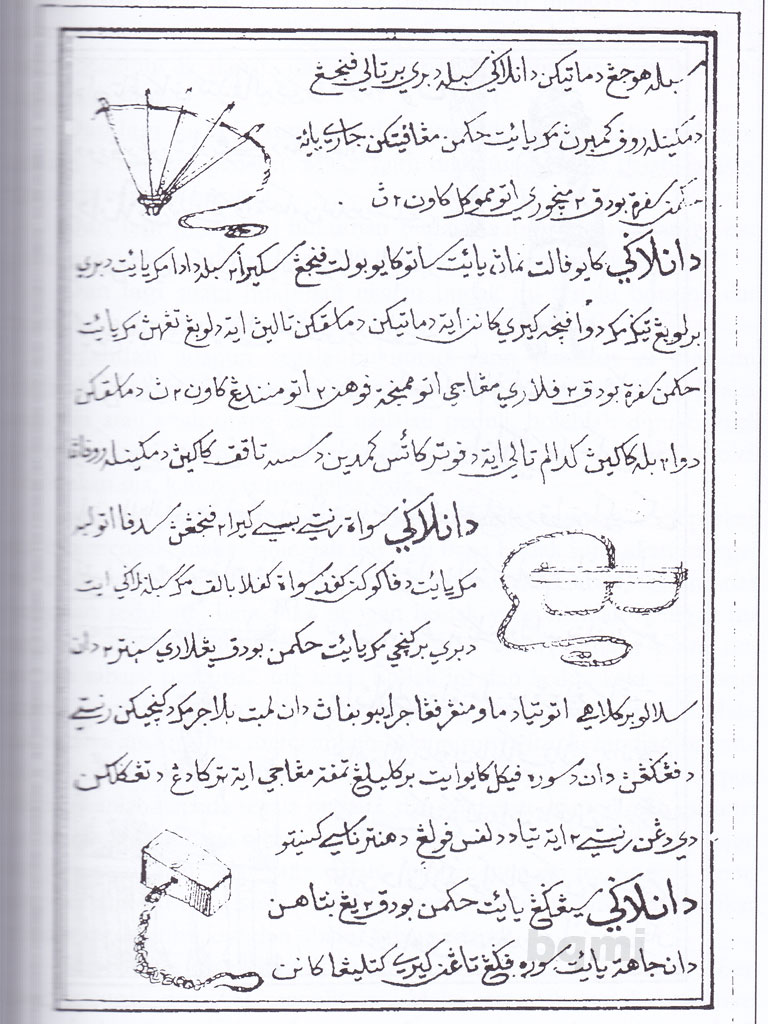 سبله هوجڠ دماتيكن دانلاڬي سبله دبري برتالي ڤنجڠ
دمكينله روڤ ڬمبرن مك يائيت حكمن مڠاڤيتكن جاري يائة
حكمن كڤد بودق ٢ منچوري اتو مموكل كاون ٢ ن
دانلاڬي كايو ڤالت نمان يائيت ساتو كايو بولت ڤنجڠ سكيرا٢ سبله دادا مك يائيت دبري
برلوبڠ تيڬ مك دوا ڤيچه كيري كانن ايت دماتيكن دماسقكن تالين ايت دلوبڠ تڠهن مك يائيت
حكمن كڤد بودق ٢ ڤلاري مڠاجي اتو ممنجة ڤوهن ٢ اتو منندڠ كاون ٢ ن دماسقكن
دوا٢ بله كاكين كدالم تالي ايت دڤوتر كاتس كمدين دسسه تاڤق كاكين دمكينله روڤان
دانلاڬي سواة رنتي بسي كيرا٢ ڤنجڠن سدڤا اتو لبه
مك يائيت دڤاكوكن كڤد سواة كڤلا بالق مك سبله لاڬي ايت
دبري بركنچي مك يائيت حكمن بودق يڠ لاري سنتر٢ دان
سلالو بركلاهي اتو تياد ماو منڠر ڤڠاجر ايبو بڤان دان لمبت بلاجر مك دكنچيكن رنتي
دڤڠڬڠن دان دسوره ڤيكل كايو ايت بركليلڠ تمڤة مڠاجي ايت تركادڠ دتڠڬلكن
دي دڠن رنتي٢ ايت تياد دلڤس ڤولڠ دهنتر ناسي كسيتو
دانلاڬي سيڠكڠ يائيت حكمن بودق ٢ يڠ بنتاهن
دان جاهة يائيت سوره ڤڬڠ تاڠن كيري كتليڠا كانن